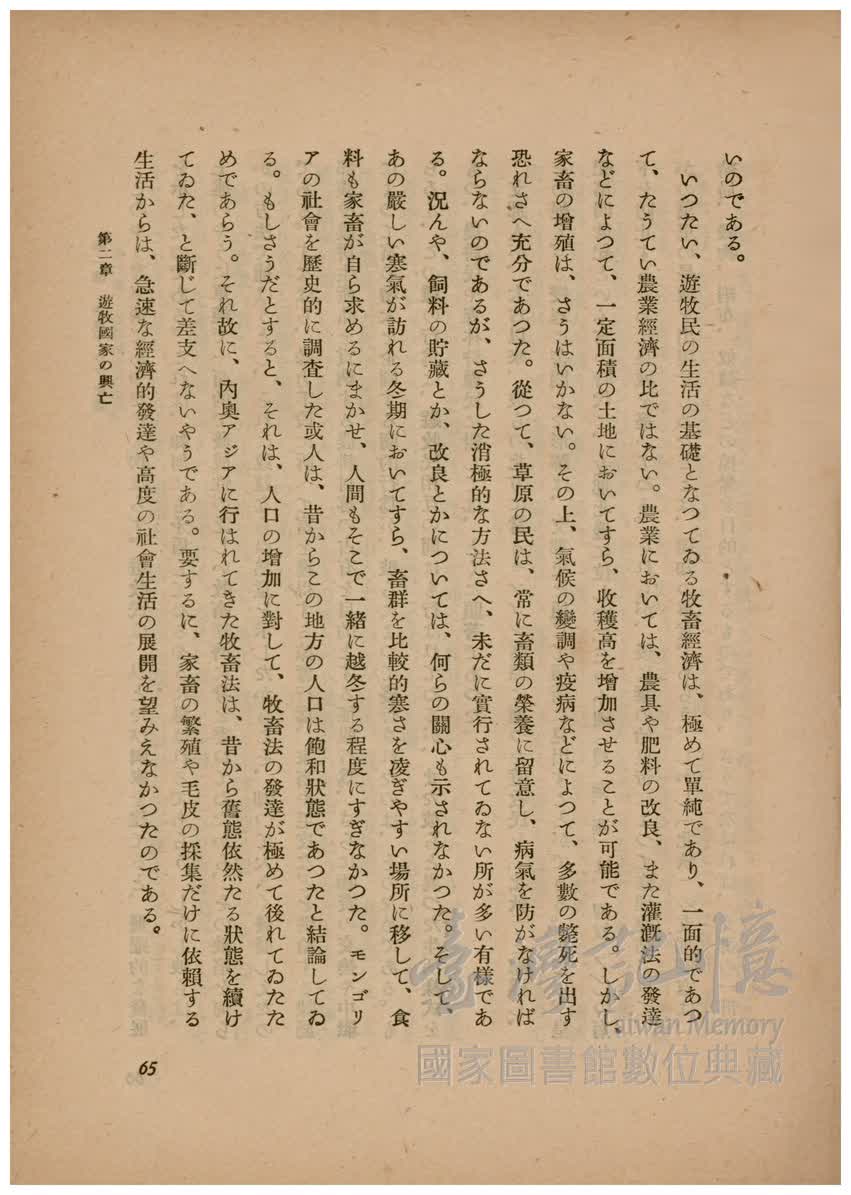 いのである。
いつたい、遊牧民の生活の基礎となつてゐる牧畜經濟は、極めて單純であり、一面的であつ
て、たうてい農業經濟の比ではない。農業においては、農具や肥料の改良、また灌漑法の發達
などによつて、一定面積の土地においてすら、收穫高を增加させることが可能である。しかし、
家畜の增殖は、さうはいかない。その上、氣候の變調や疫病などによつて、多數の斃死を出す
恐れさへ充分であつた。從つて、草原の民は、常に畜類の榮養に留意し、病氣を防がなければ
ならないのであるが、さうした消極的な方法さへ、未だに實行されてゐない所が多い有樣であ
る。況んや、飼料の貯藏とか、改良とかについては、何らの關心も示されなかつた。そして、
あの嚴しい寒氣が訪れる冬期においてすら、畜群を比較的寒さを凌ぎやすい場所に移して、食
料も家畜が自ら求めるにまかせ、人間もそこで一緒に越冬する程度にすぎなかつた。モンゴリ
アの社會を歷史的に調査した或人は、昔からこの地方の人口は飽和狀態であつたと結論してゐ
る。もしさうだとすると、それは、人口の增加に對して、牧畜法の發達が極めて後れてゐたた
めであらう。それ故に、內奧アジアに行はれてきた牧畜法は、昔から舊態依然たる狀態を續け
てゐた、と斷じて差支へないやうである。要するに、家畜の繁殖や毛皮の採集だけに依賴する
生活からは、急速な經濟的發達や高度の社會生活の展開を望みえなかつたのである。
第二章 遊牧國家の興亡
65
臺灣記憶
Taiwan Memory
國家圖書館數位典藏